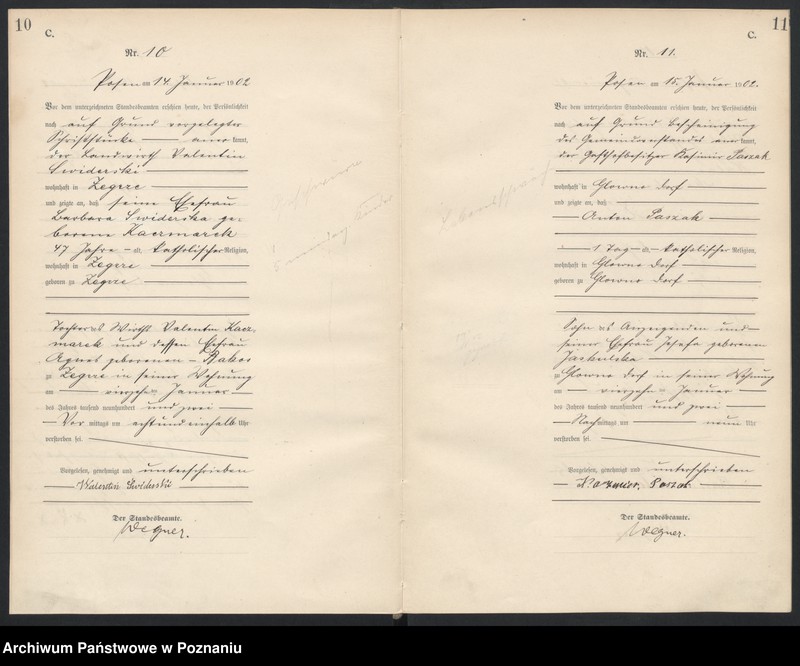 10
C.
Nr. 10
Posen am 14 Januar 1902
Vor dem unterzeichneten Standesbeamten erschien heute, der Persönlichkeit
nach auf Grund vorgelegter
Schriftstücke — anerkannt,
der Landwirth Valentin
Swiderski
wohnhaft in Zegrze
und zeigte an, daß seine Ehefrau
Barbara Swiderska ge-
borene Kaczmarek
47 Jahre alt, katholischer Religion,
wohnhaft in Zegrze
geboren zu Zegrze
Tochter des Wirths Valentin Kacz-
marek und dessen Ehefrau
Agnes geborenen Rakos
zu Zegrze in seiner Wohnung
am vierzehn Januar
des Jahres tausend neunhundert und zwei
Vormittags um acht und einhalb Uhr
verstorben sei.
Vorgelesen, genehmigt und unterschrieben
Walenstin Swiderski
Der Standesbeamte.
Wegner.
11
C.
Nr. 11.
Posen am 15. Januar 1902.
Vor dem unterzeichneten Standesbeamten erschien heute, der Persönlichkeit
nach auf Grund Bescheinigung
des Gemeindevorstandes anerkannt,
der Gasthofbesitzer Kasimir Paszak
wohnhaft in Glowno Dorf
und zeigte an, daß
Anton Paszak
1 Tag alt, katholischer Religion,
wohnhaft in Glowno Dorf
geboren zu Glowno Dorf
Sohn des Anzeigenden und
seiner Ehefrau Josefa geborenen
Jaskulska
Glowno Dorf in seiner Wohnung
am vierzehn Januar
des Jahres tausend neunhundert und zwei
Nachmittags um neun Uhr
verstorben sei.
Vorgelesen, genehmigt und unterschrieben
Kazmier. Paszak
Der Standesbeamte.
Wegner.
Archiwum Państwowe w Poznaniu